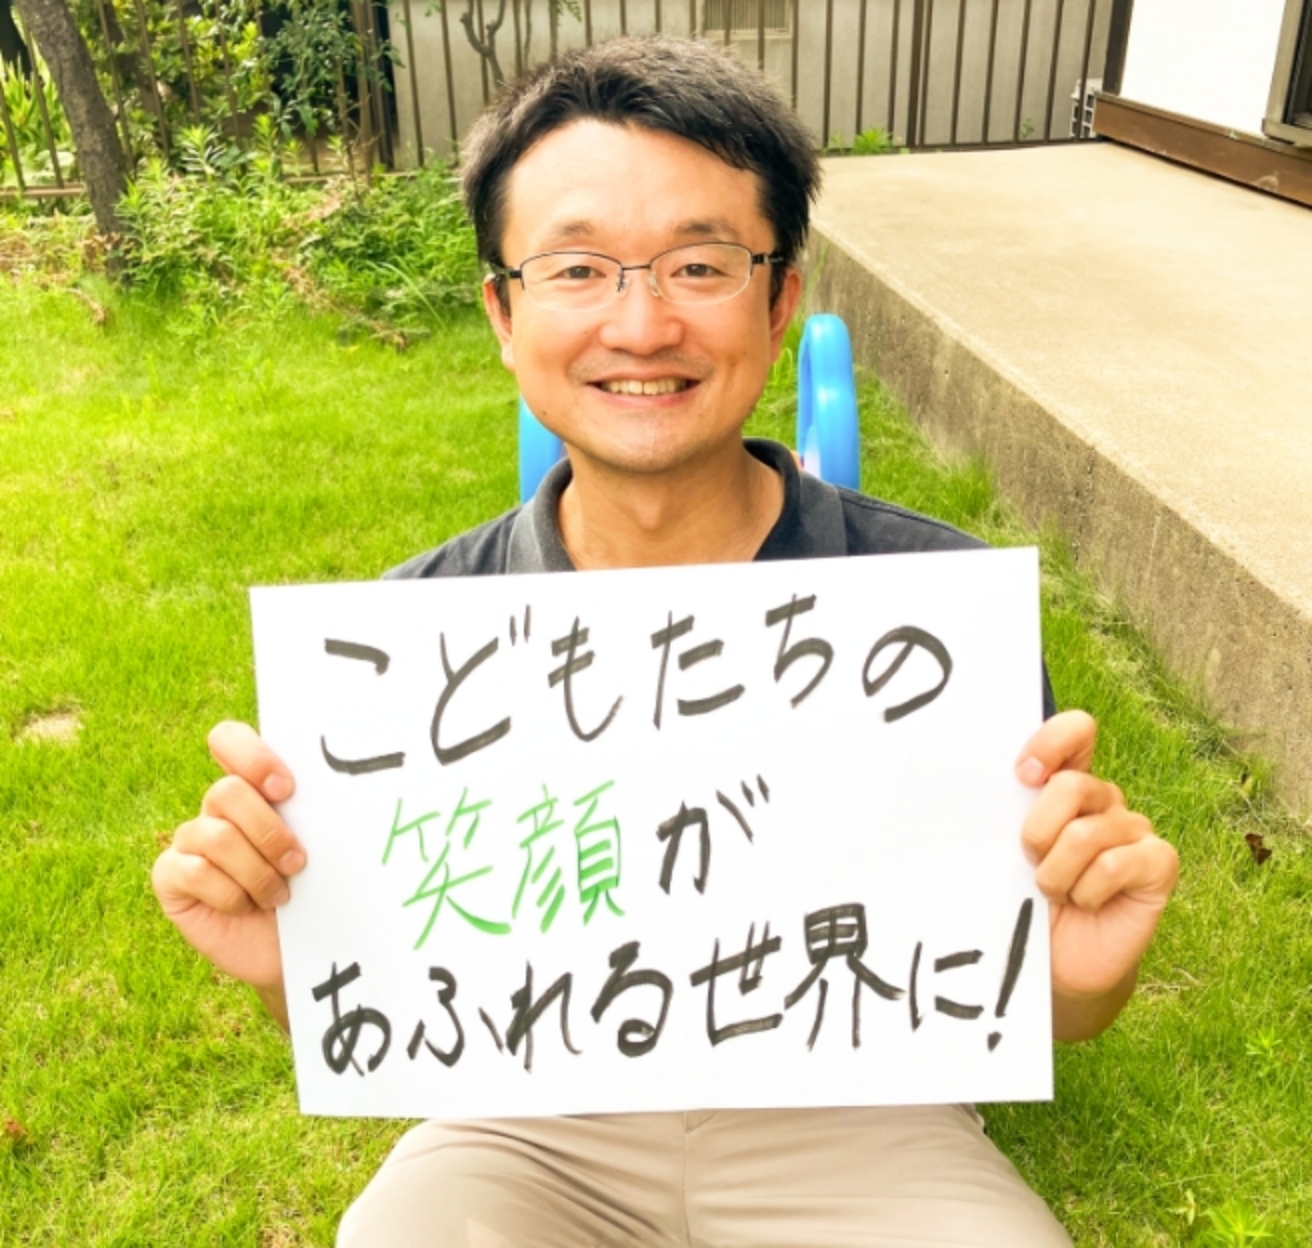 こどもたちの
笑顔が
あふれる世界に!